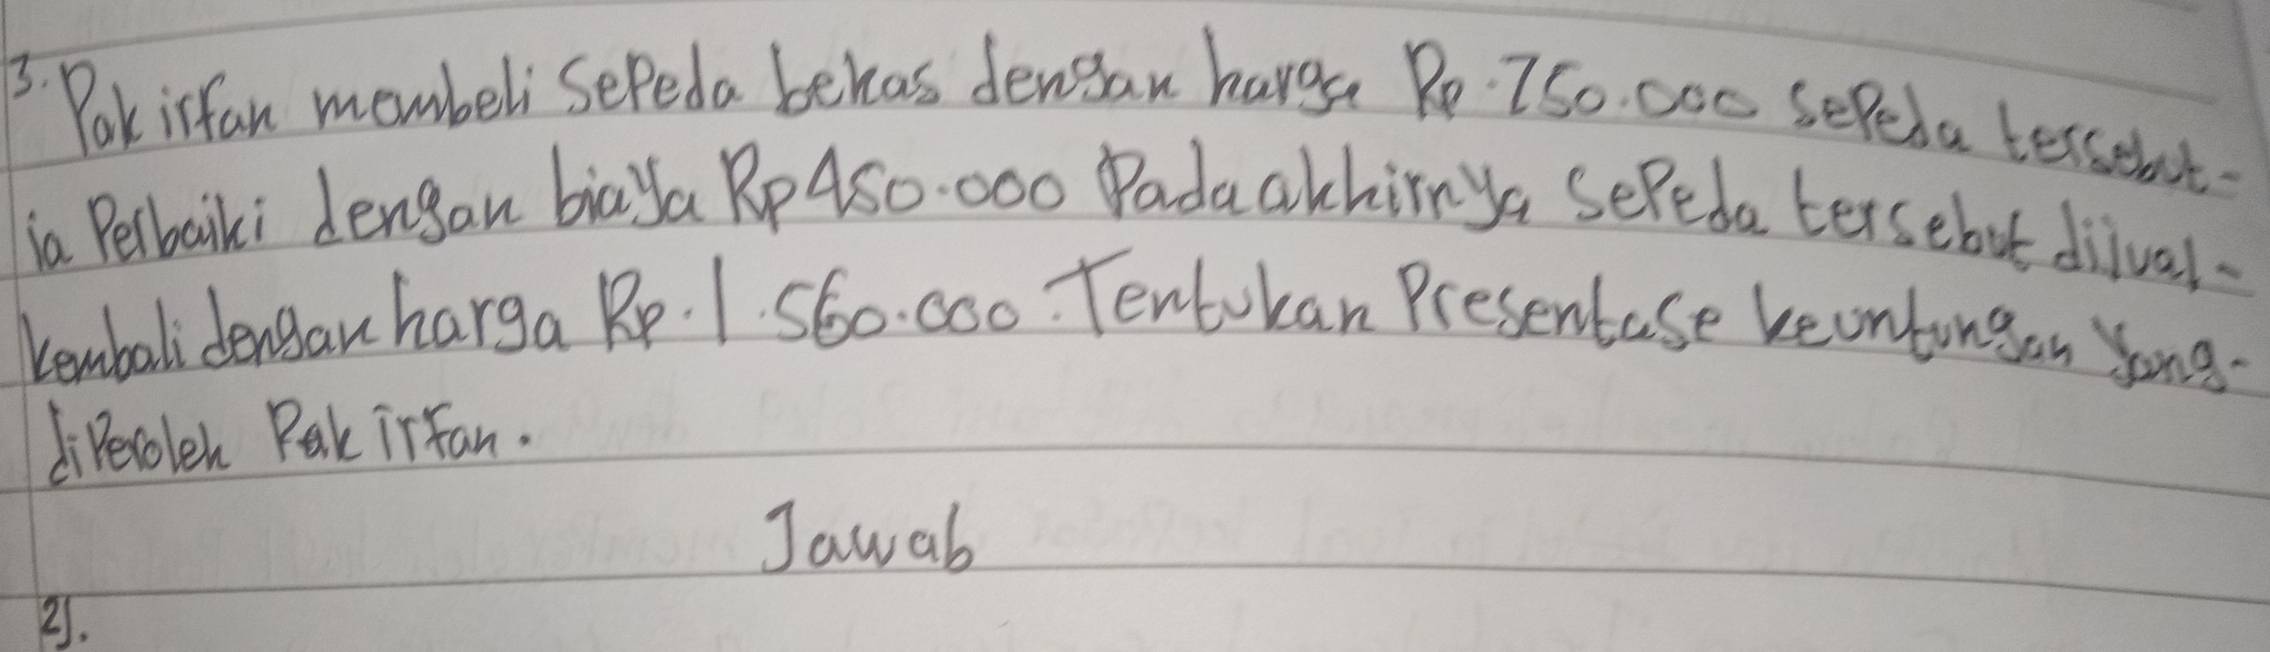 3. Pak irfan membeli sepeda bekas dengan harga Rp. 750.000 sepeda tersebut-
ia Perbaiki dengan biaya Rp 450.000 Pada akhirnya sepeda tersebut dijual-
kembali dengan harga Rp. 1.560.000. Tentukan Presentase keuntungan yang-
diperoleh Pak irfan.
Jawab
2).